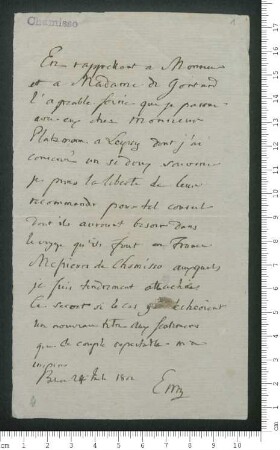 Chamisso
En rappellant a Monsieur
et a Madame de
L'agreable soirée que je passai
avec eux chez Monsieur
a dont j'ai
conservé un si doux souvenir
je prens la liberté de leur
recommander pour tel conseil
dont ils auront besoin dans
le voyage qu'ils font en France
Messieurs de Chamisso auxquels
je suis tendrement attaché
Ce si le cas echeoient
un nouveau titre aux sentimens
que Ce couple respectable m'a
inspiré
1802